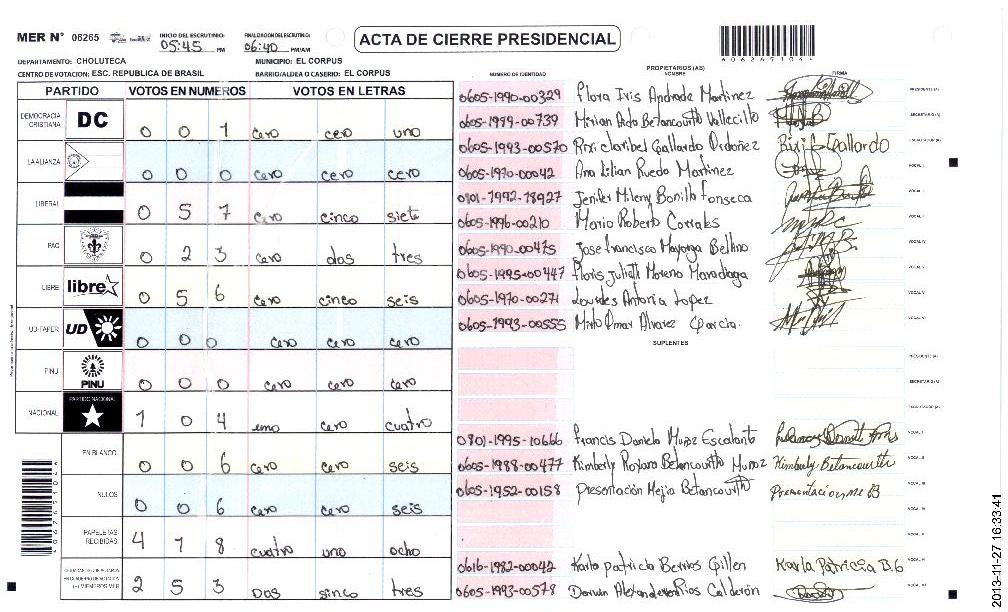 MER N° 06265
INICIO DEL ESCRUTINIO: 05:45 PM
FINALIZACION DEL ESCRUTINIO: 06:40 PM/AM
ACTA DE CIERRE PRESIDENCIAL
DEPARTAMENTO: CHOLUTECA
MUNICIPIO: EL CORPUS
CENTRO DE VOTACION: ESC. REPUBLICA DE BRASIL
BARRIO/ALDEA O CASERIO: EL CORPUS
PARTIDO VOTOS EN NUMEROS VOTOS EN LETRAS
DEMOCRACIA CRISTIANA DC 0 0 1 cero cero uno
LA ALIANZA 0 0 0 cero cero cero
LIBERAL 0 5 7 cero cinco siete
PAC 0 2 3 cero dos tres
LIBRE libre 0 5 6 cero cinco seis
UD-FAPER UD 0 0 0 cero cero cero
PINU PINU 0 0 0 cero cero cero
NACIONAL PARTIDO NACIONAL 1 0 4 uno cero cuatro
EN BLANCO 0 0 6 cero cero seis
NULOS 0 0 6 cero cero seis
PAPELETAS RECIBIDAS 4 1 8 cuatro uno ocho
2 5 3 Dos sinco tres
PROPIETARIOS (AS)
NUMERO DE IDENTIDAD NOMBRE FIRMA
0605-1990-00329 Flora Iris Andrade Martinez PRESIDENTE (A)
0605-1979-00739 Mirian Aida Betancourth Vallecillo SECRETARIO (A)
0605-1993-00570 Rixi claribel Gallardo Ordoñez Rixi Gallardo ESCRUTADOR (A)
0605-1970-00042 Ana Lilian Rueda Martinez VOCAL I
0101-1992-18927 Jenifer Mileny Bonilla Fonseca VOCAL II
0605-1996-00210 Mario Roberto Corrales VOCAL III
0605-1990-00475 Jose francisco Mayorga Bellino VOCAL IV
0605-1995-00447 Floris Julieth Moreno Maradiaga VOCAL V
0605-1970-00271 Lourdes Antonia Lopez VOCAL V
0605-1993-00555 Mirto Omar Alvarez Garcia VOCAL VI
SUPLENTES
PRESIDENTE (A)
SECRETARIO (A)
ESCRUTADOR (A)
0801-1995-10666 Francis Daniela Muñoz Escalante VOCAL I
0605-1988-00477 Kimberly Roxana Betancourth Munoz Kimberly Betancourth VOCAL II
0605-1952-00158 Presentación Mejia Betancourth Presentacion M B VOCAL III
0616-1982-00042 Karla patricia Berrios Guillen Karla Patricia B.G VOCAL VI
0605-1993-00578 Darwin Alexander Rios Calderón
2013-11-27 16:33:41